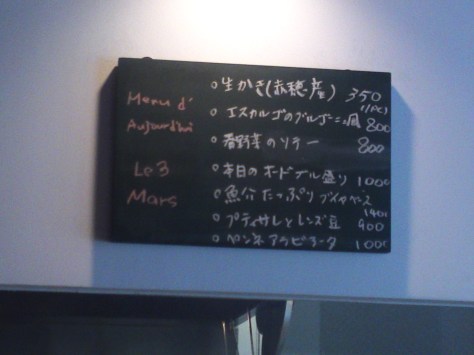 Menu d'
Aujourd'hui
Le 3
Mars
○生かき(赤穂産) 350
(1PC)
○エスカルゴのブルゴーニュ風 800
○春野菜のソテー 800
○本日のオードブル盛り 1000
○魚介たっぷりブイヤベース
1400
○プティサレとレンズ豆 900
○ペンネアラビアータ 1000